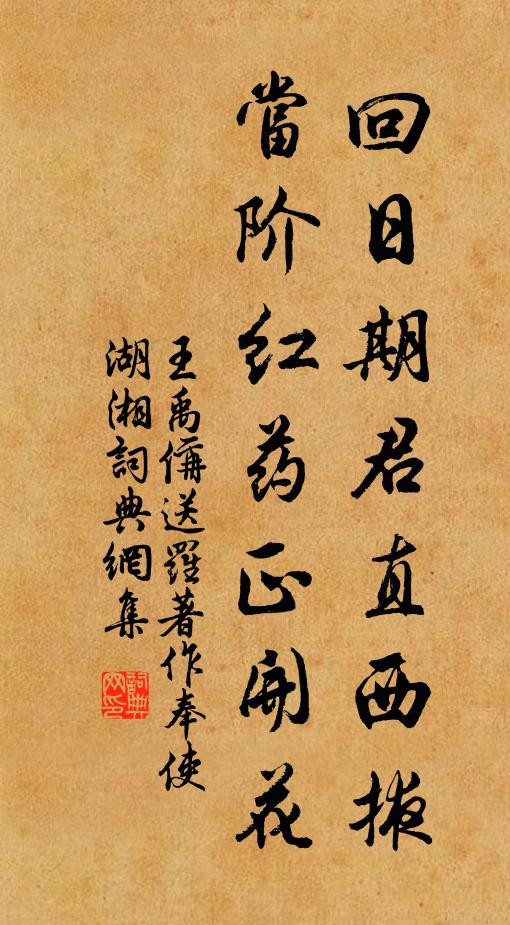 回日期君直西掖
當阶红药正開花
王禹偁送羅著作奉使
湖湘詞典網集
詞典網印